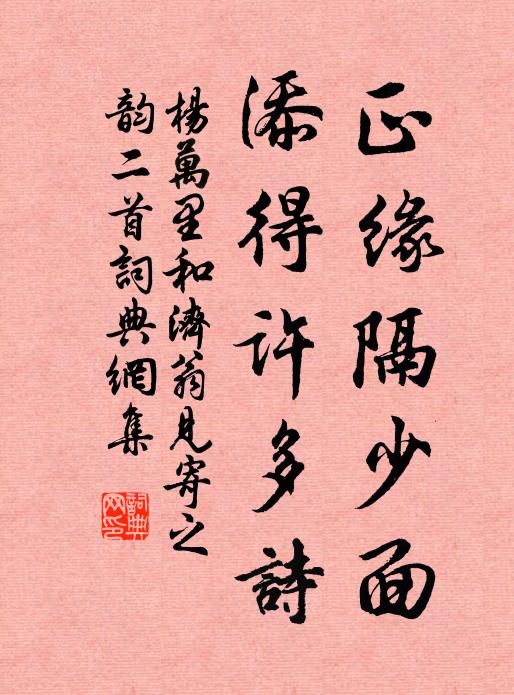 正缘隔少面
添得许多詩
楊萬里和濟翁見寄之
韵二首詞典網集
詞典
网印